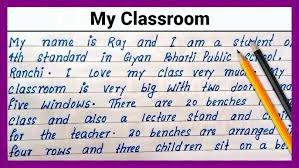 My Classroom
My name is Raj and I am a student
4th standard in Gyan Bharti Public School,
Ranchi. I love my class very much.
classroom is very big with two doors
five windows. There are 20 benches
class and also a lecture stand and
for the teacher. 20 benches are arranged
four rows and three children sit on a